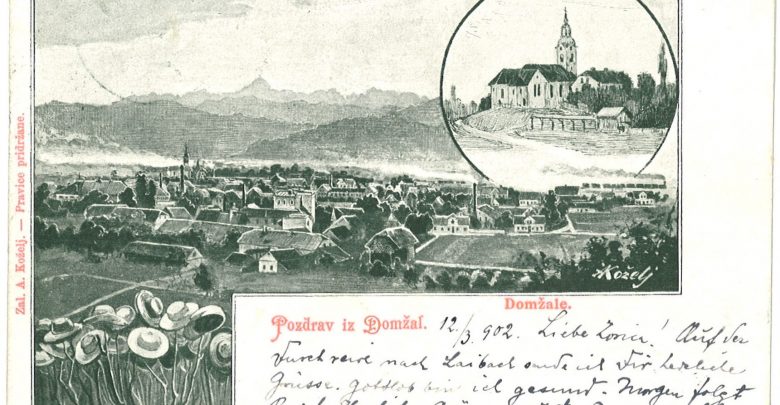 Zal. A. Koželj. — Pravice pridržane.
AKoželj
Domžale.
Pozdrav iz Domžal. 12/3 902. Liebe Zorica! Auf der
Durchreise nach Laibach sende ich Dir herzliche
Grüsse. Gottlob bin ich gesund. Morgen folgt